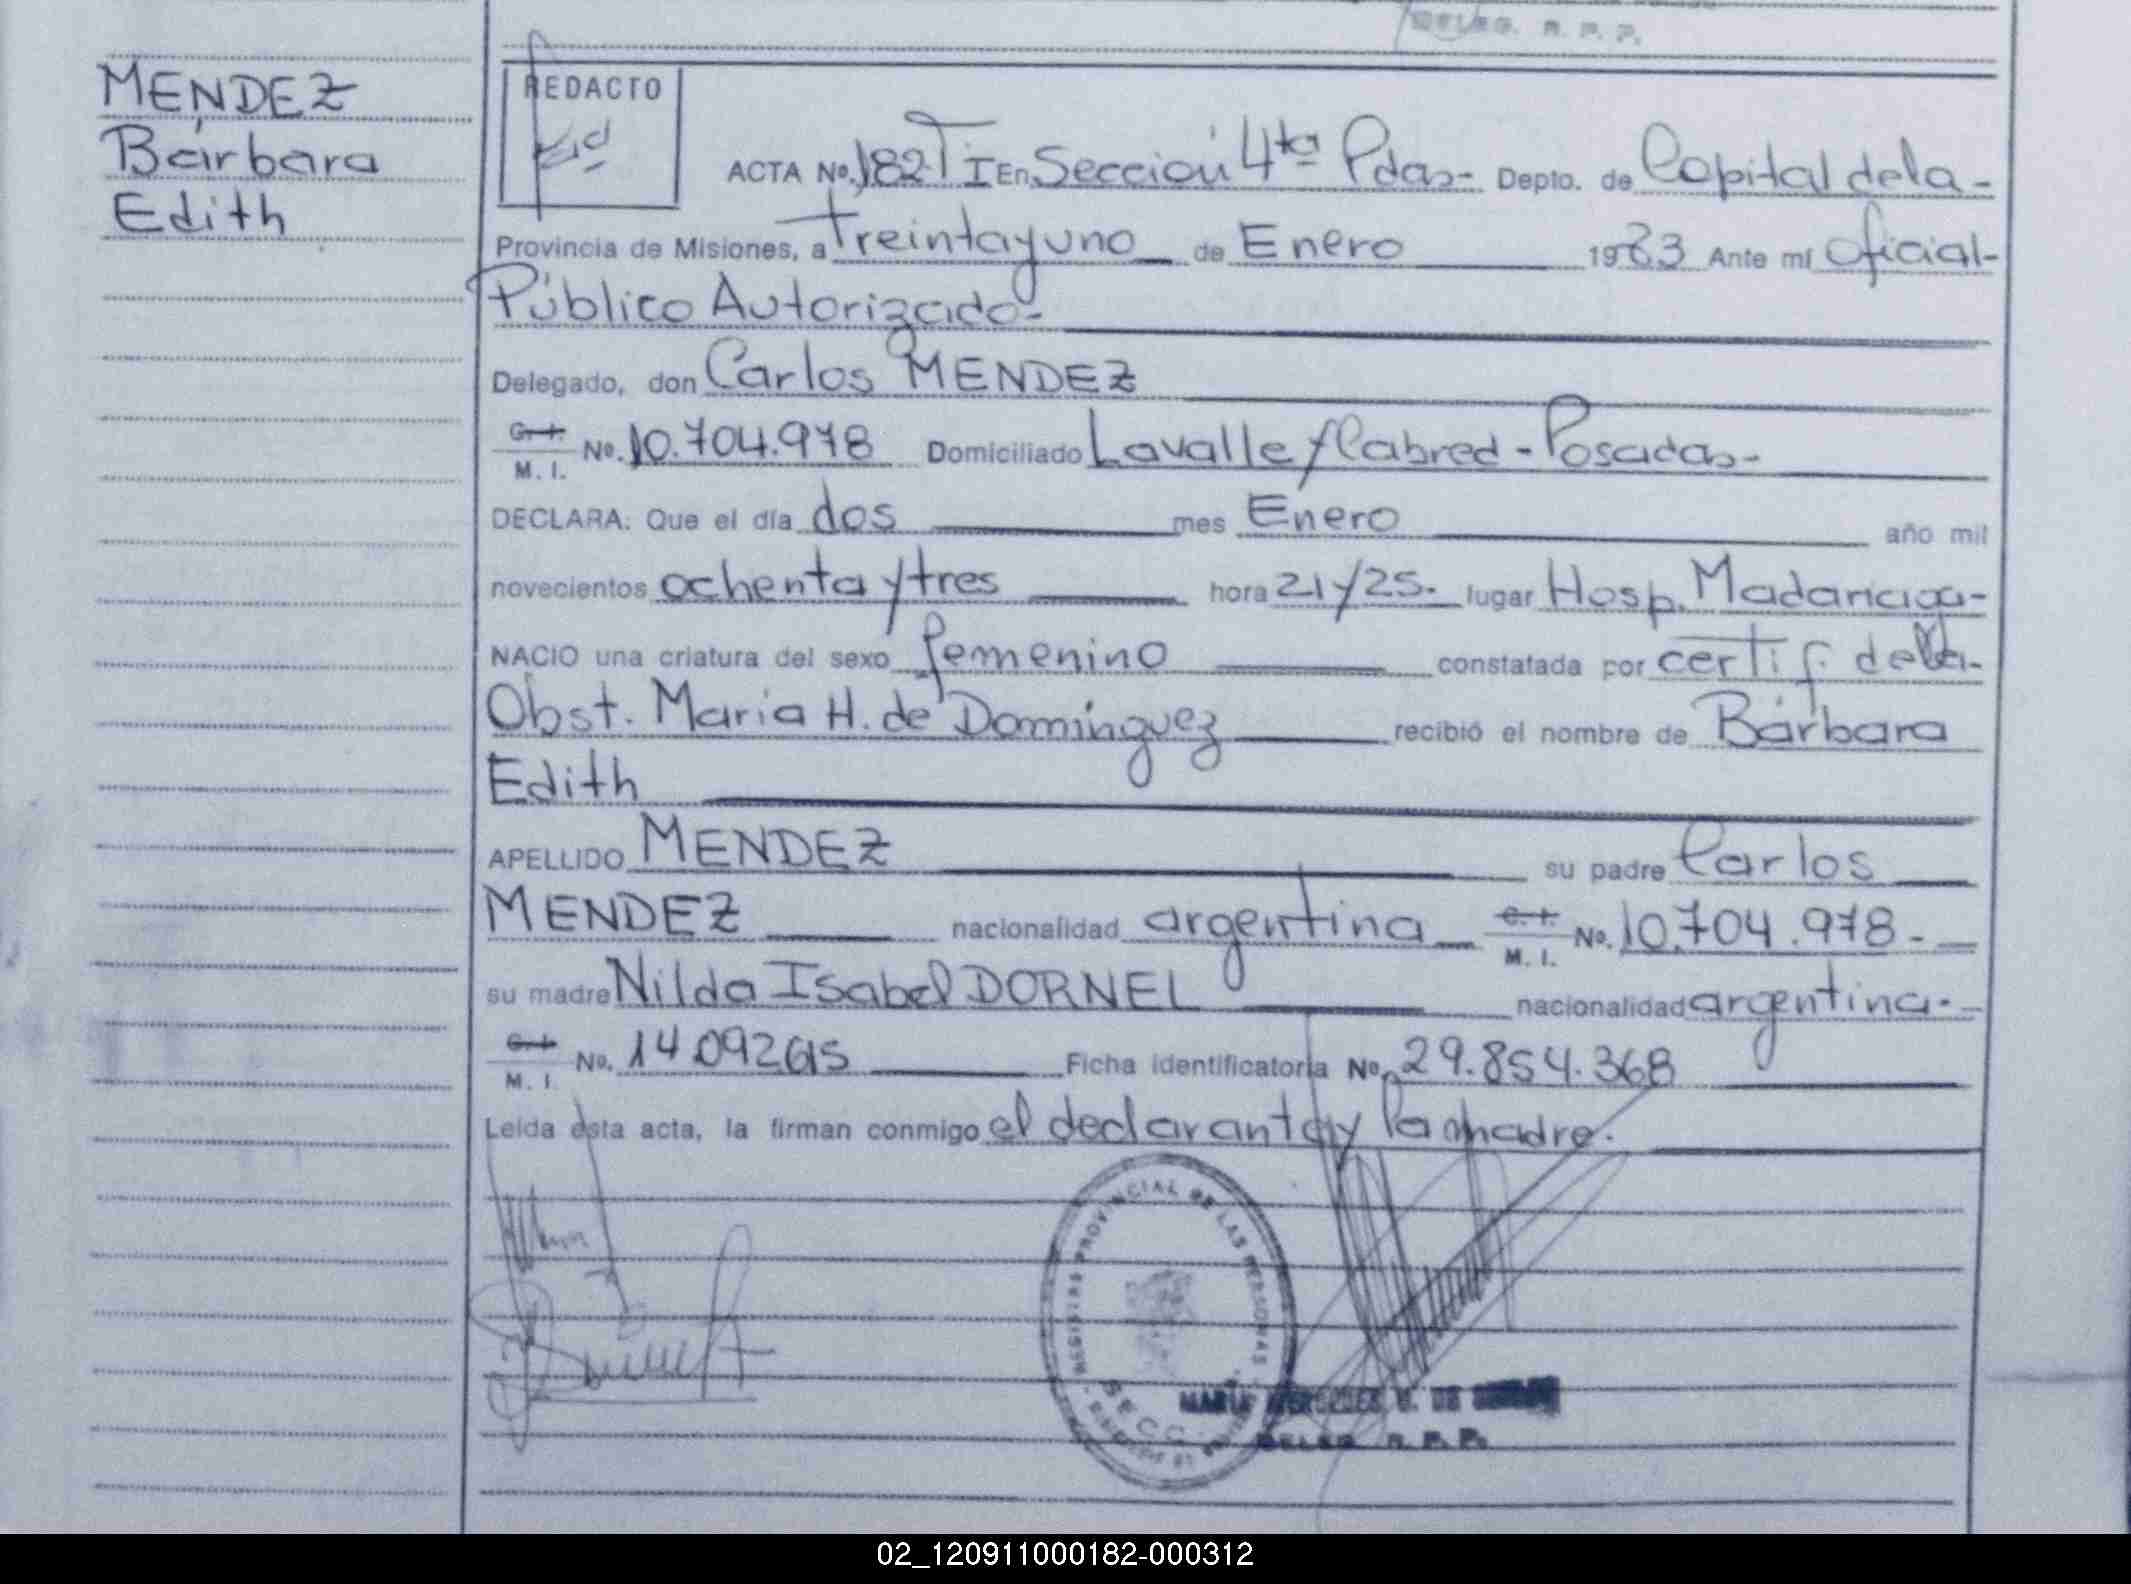 DELEG. R. P. P.
MENDEZ
Bárbara
Edith
REDACTO
ACTA No. 182 T I En Sección 4ta Pdas- Depto. de Capital de la-
Provincia de Misiones, a treinta y uno de Enero 1983 Ante mí oficial-
Público Autorizado-
Delegado, don Carlos MENDEZ
C. I.
M. I. No. 10.704.978 Domiciliado Lavalle y Cabred - Posadas-
DECLARA: Que el día dos mes Enero año mil
novecientos ochenta y tres hora 21 y 25. lugar Hosp. Madariaga-
NACIO una criatura del sexo femenino constatada por certif. de la-
Obst. María H. de Domínguez recibió el nombre de Bárbara
Edith
APELLIDO MENDEZ su padre Carlos
MENDEZ nacionalidad argentina C. I. M. I. No. 10.704.978-
su madre Nilda Isabel DORNEL nacionalidad argentina.-
C. I.
M. I. No. 14.092.615 Ficha identificatoria No. 29.854.368
Leída esta acta, la firman conmigo el declarante y la madre.
REGISTRO PROVINCIAL DE LAS PERSONAS
SECC.
MARIA MERCEDES
DELEG. R. P. P.
02_120911000182-000312